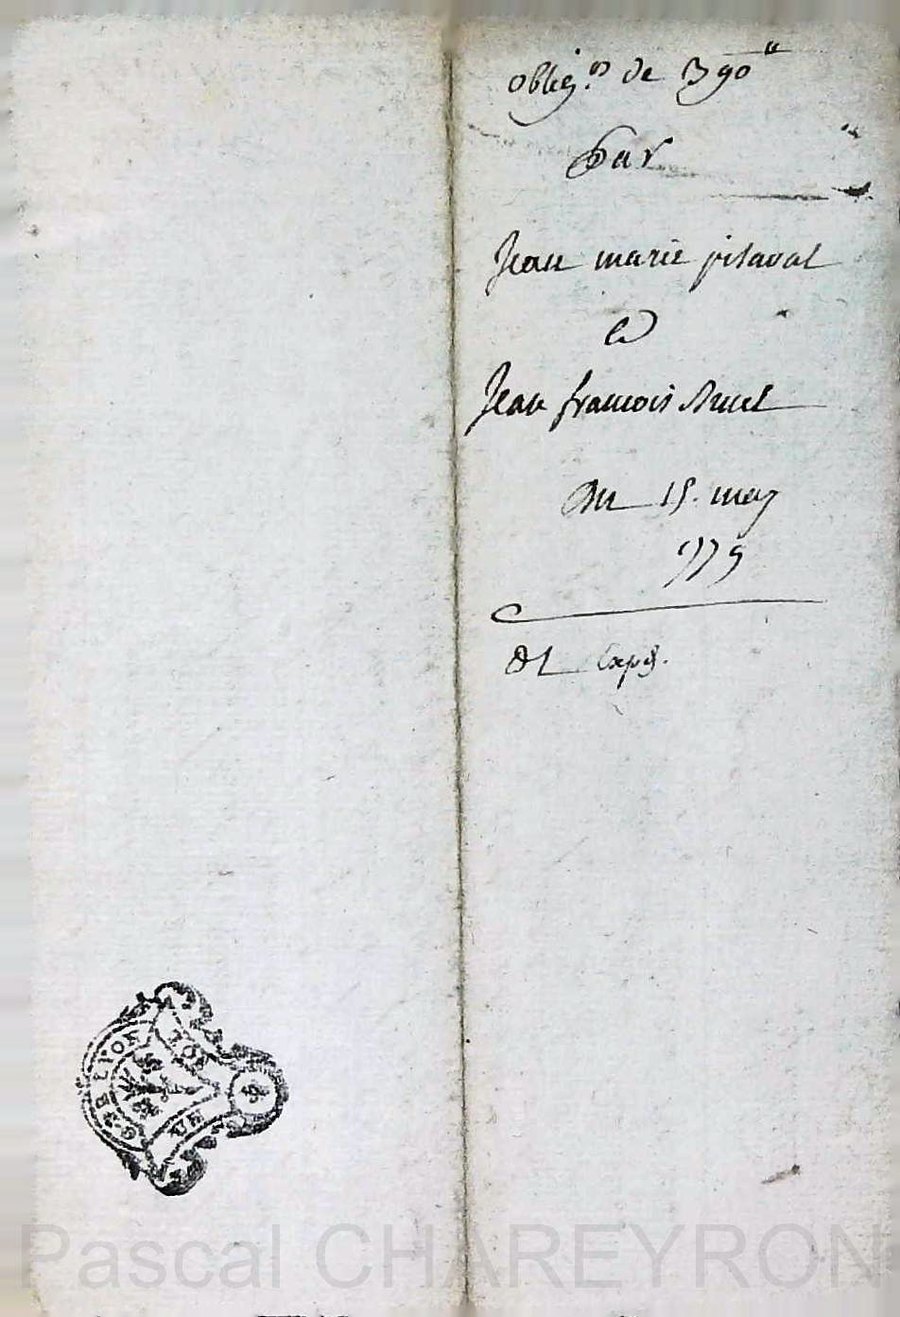 oblig.on de 390"
par
Jean marie pitaval
et
Jean francois Nuel
Du 15. may
1779
Expé.
G DE LYON
UN
Pascal CHAREYRON